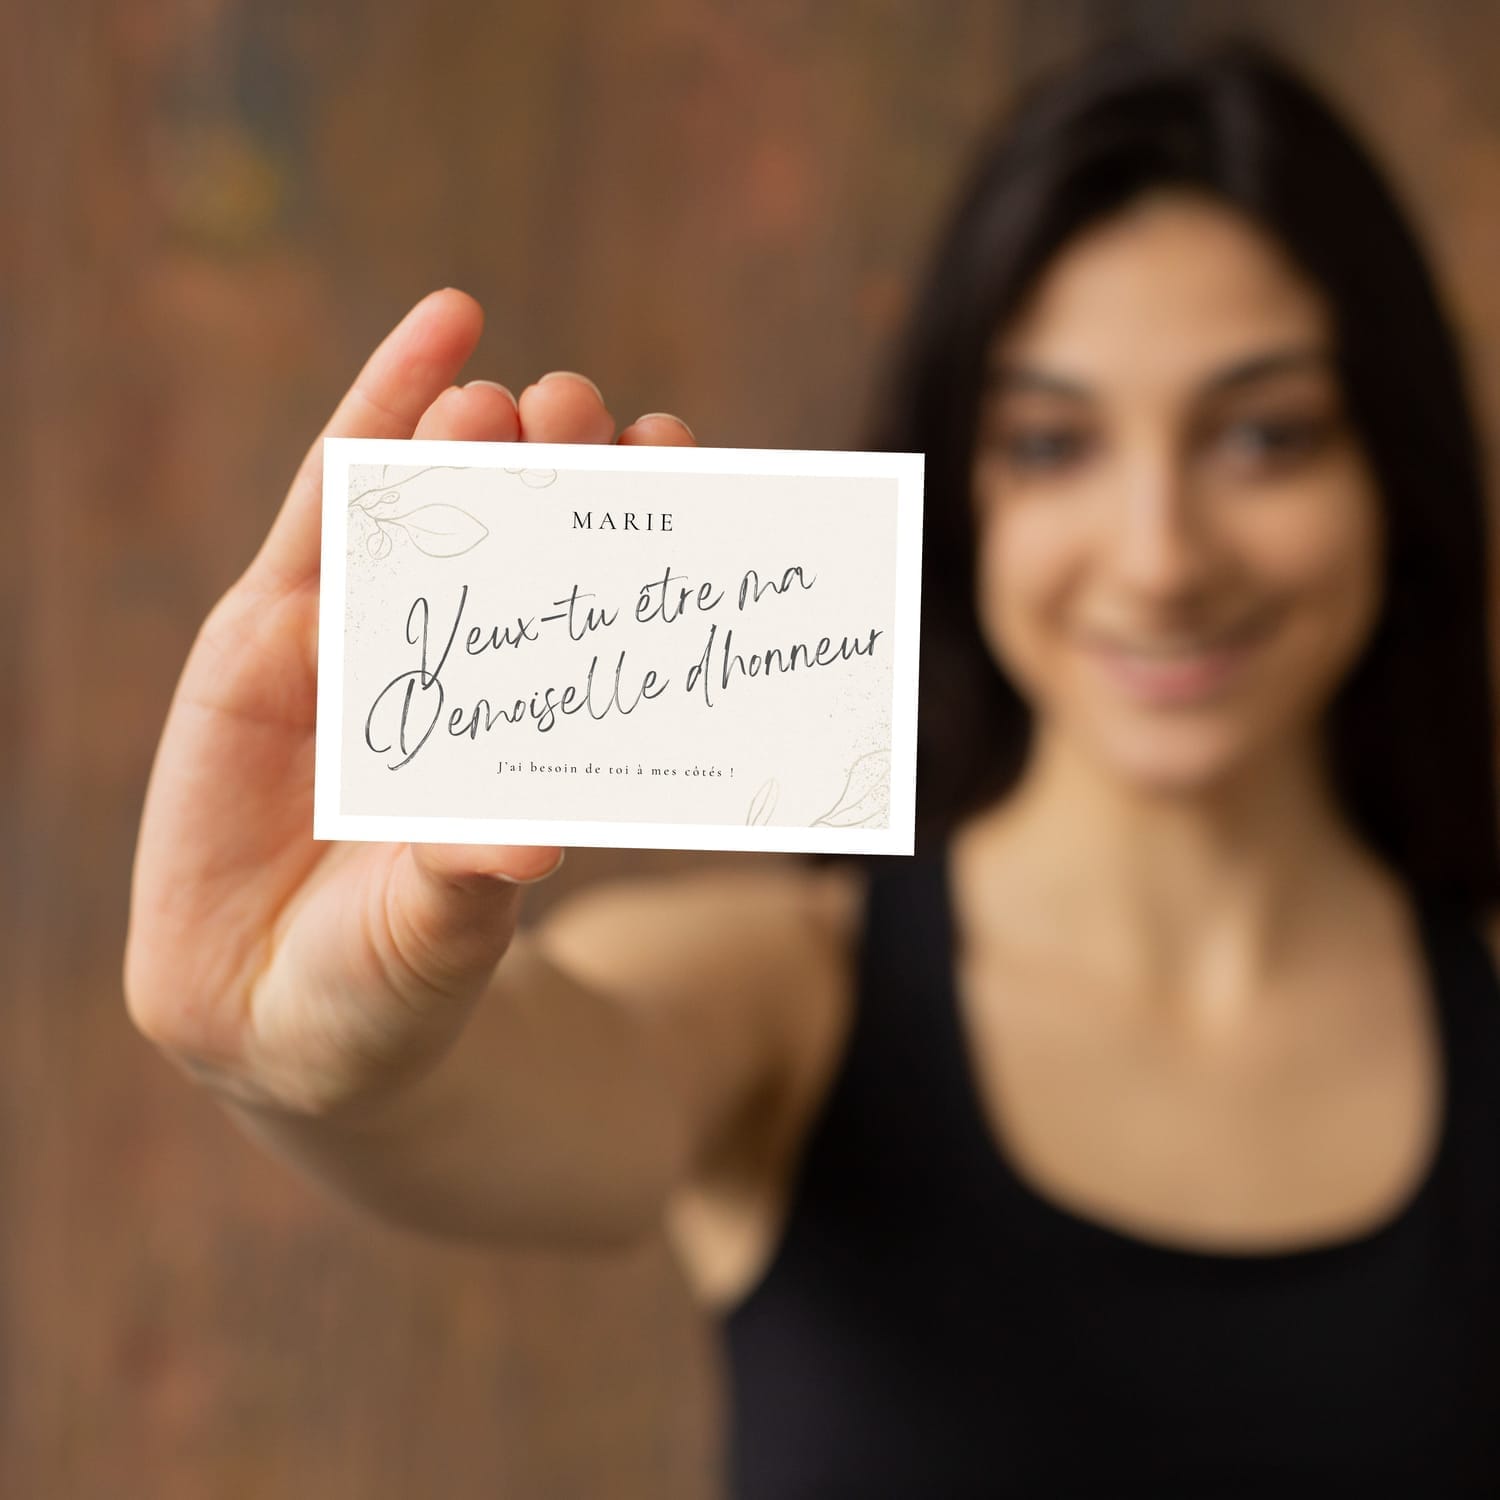 MARIE
Veux-tu être ma
Demoiselle d'honneur
J'ai besoin de toi à mes côtés !